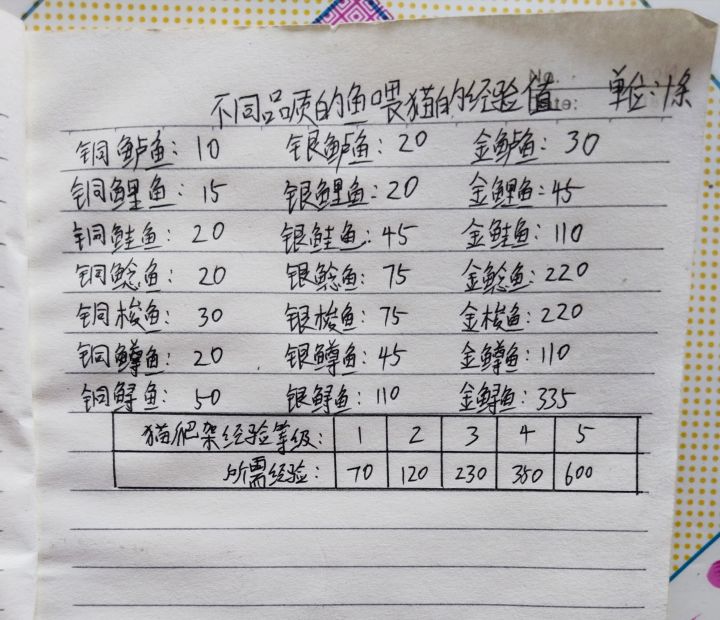 不同品质的鱼喂猫的经验值 单位:条
铜鲈鱼: 10 银鲈鱼: 20 金鲈鱼: 30
铜鲤鱼: 15 银鲤鱼: 20 金鲤鱼: 45
铜鲑鱼: 20 银鲑鱼: 45 金鲑鱼: 110
铜鲶鱼: 20 银鲶鱼: 75 金鲶鱼: 220
铜梭鱼: 30 银梭鱼: 75 金梭鱼: 220
铜鳟鱼: 20 银鳟鱼: 45 金鳟鱼: 110
铜鲟鱼: 50 银鲟鱼: 110 金鲟鱼: 335
猫爬架经验等级: 1 2 3 4 5
所需经验: 70 120 230 350 600